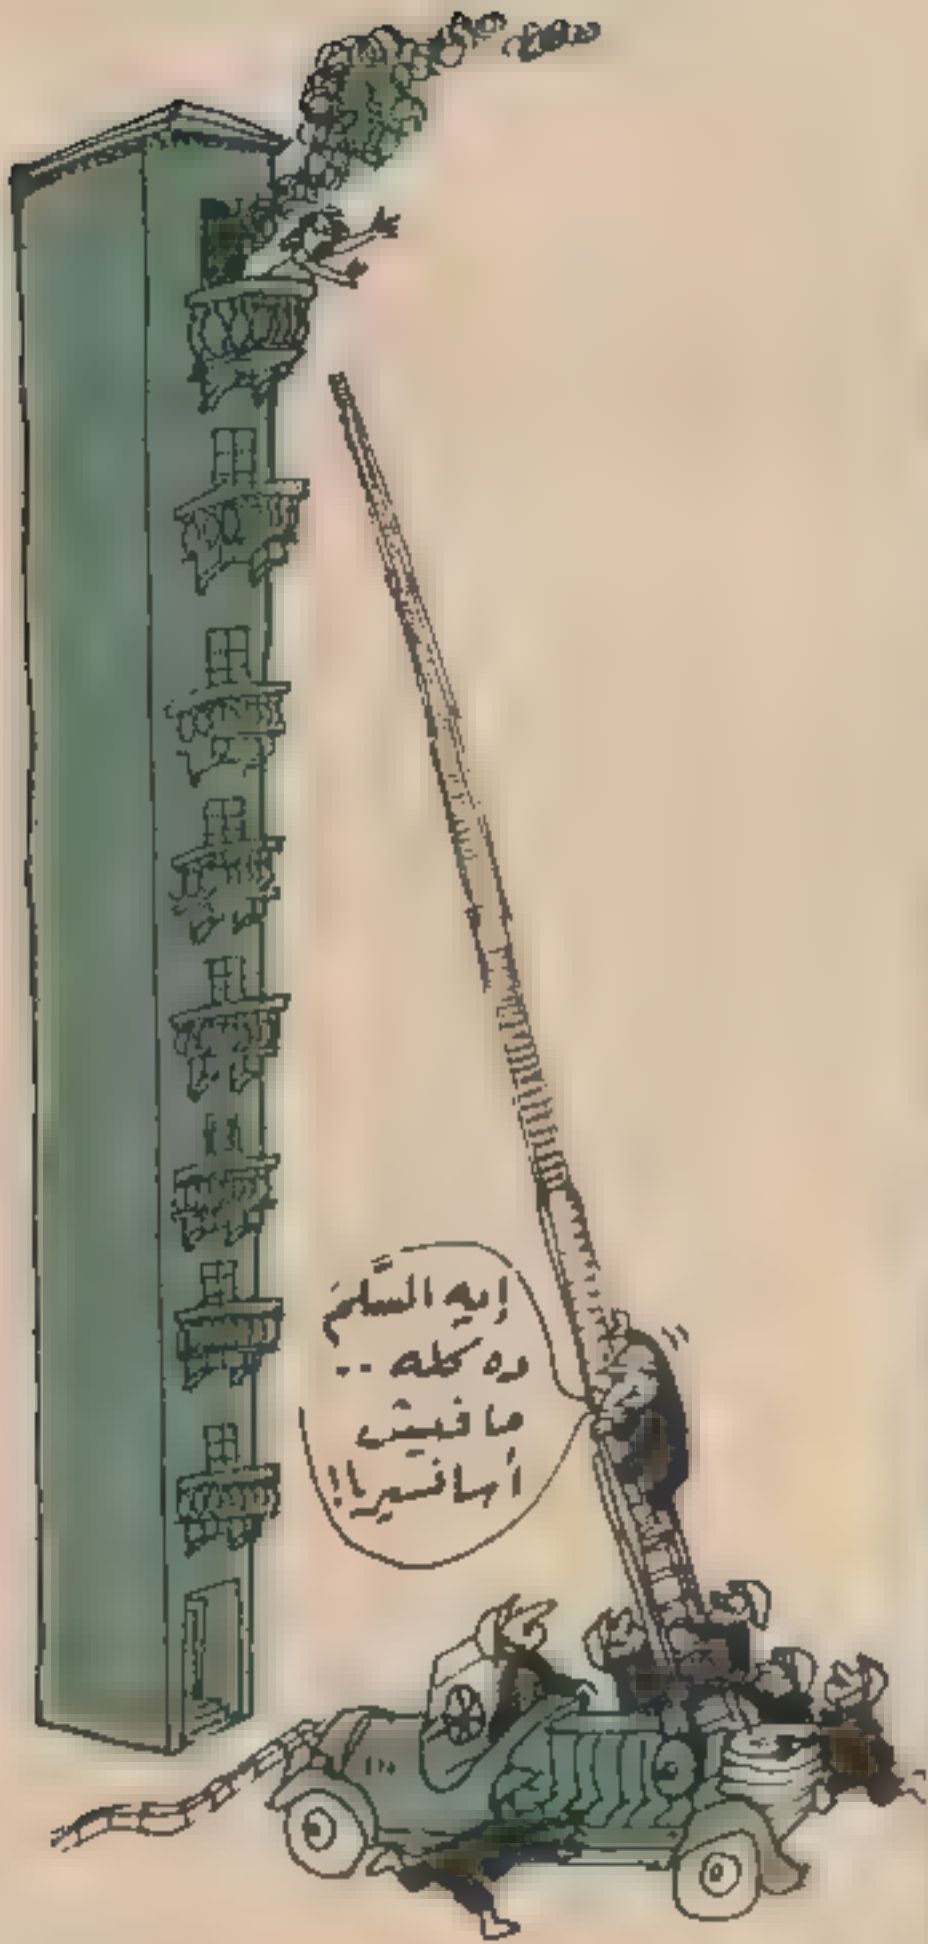 إيه السَّلم
ده كله ..
ما فيش
أسانسير!!